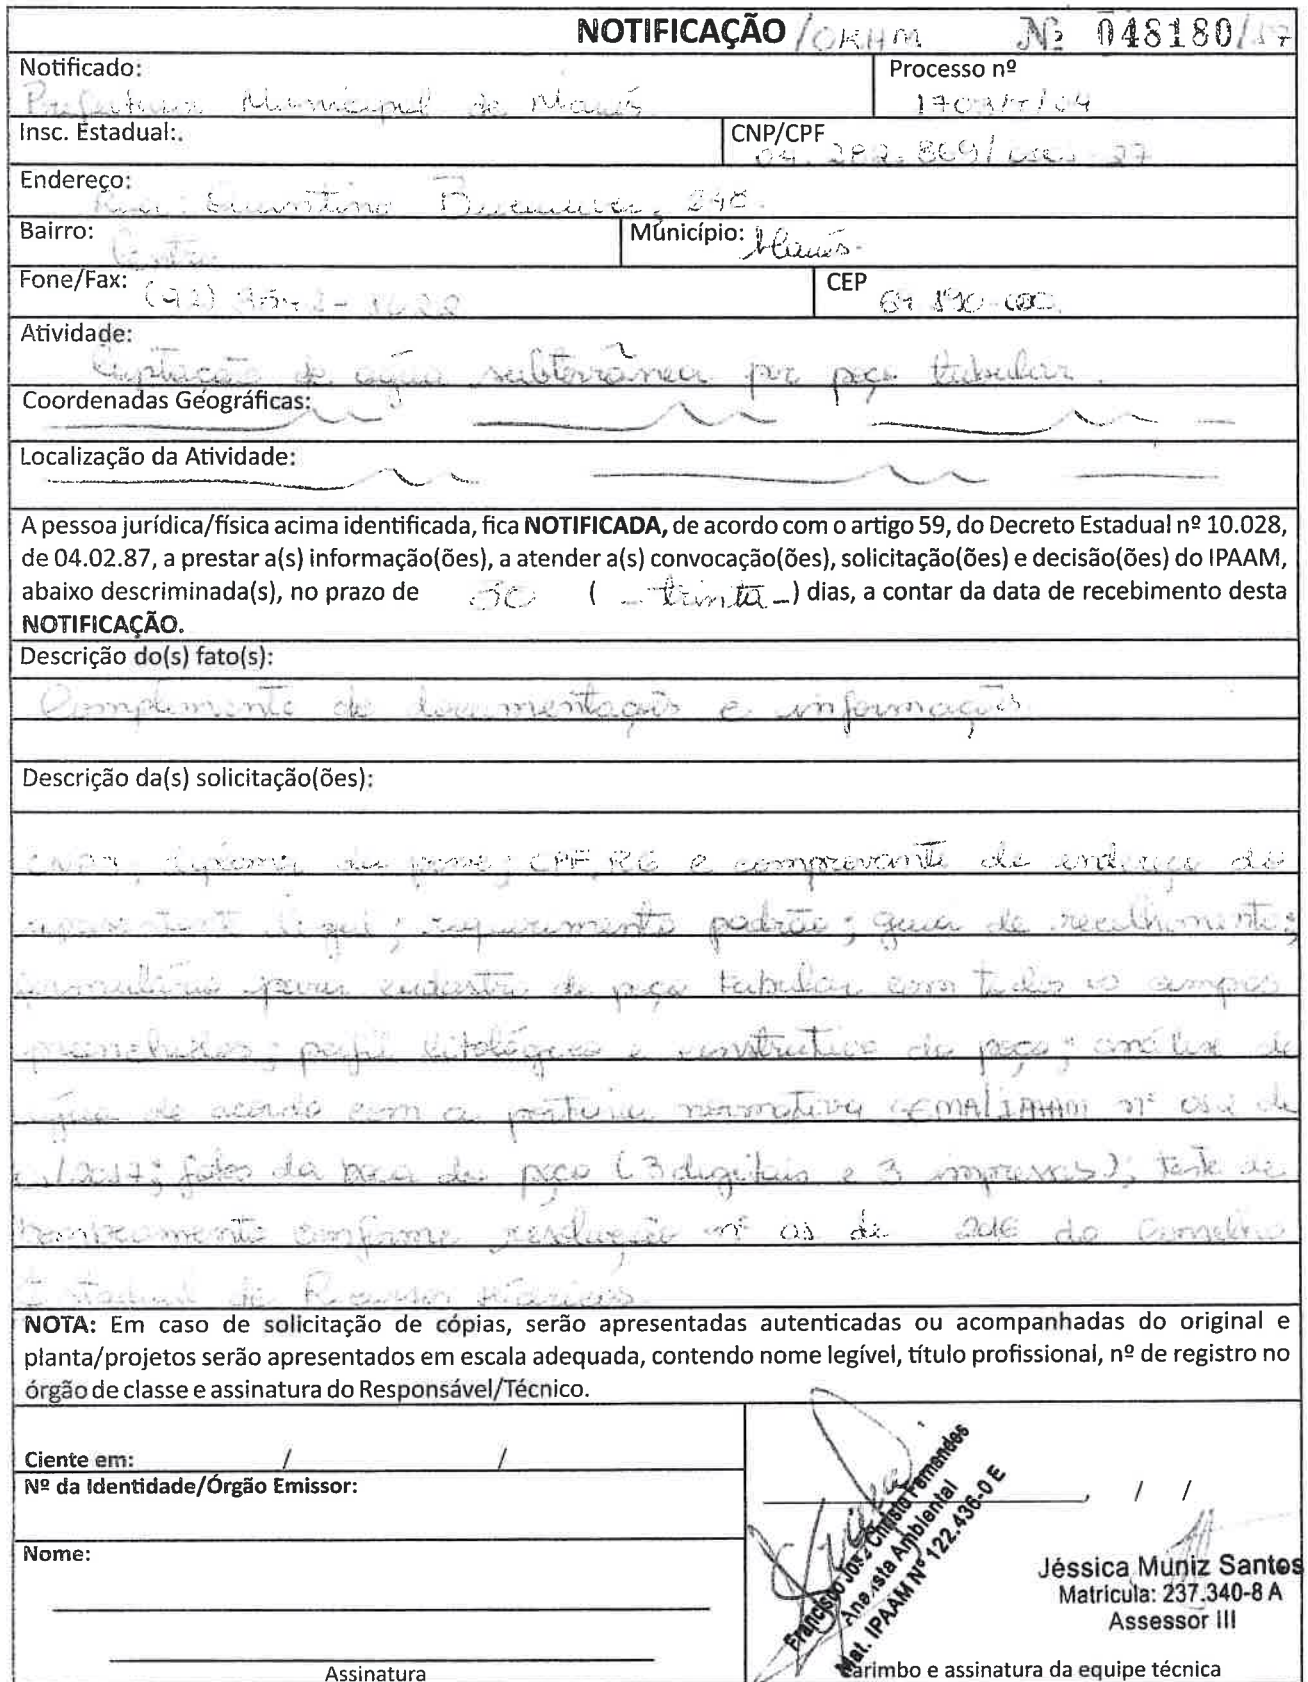 NOTIFICAÇÃO Nº 048180/17
Notificado: Processo nº
Prefeitura Municipal de Maués
Insc. Estadual:. CNP/CPF
04.282.869/ 27
Endereço:
Rua: Quintino
Bairro: Município: Maués
Centro
Fone/Fax: CEP
(92)
Atividade:
Captação de água subterrânea por poço tubular.
Coordenadas Géográficas:
Localização da Atividade:
A pessoa jurídica/física acima identificada, fica NOTIFICADA, de acordo com o artigo 59, do Decreto Estadual nº 10.028,
de 04.02.87, a prestar a(s) informação(ões), a atender a(s) convocação(ões), solicitação(ões) e decisão(ões) do IPAAM,
abaixo descriminada(s), no prazo de 30 ( - trinta -) dias, a contar da data de recebimento desta
NOTIFICAÇÃO.
Descrição do(s) fato(s):
Complemento de documentação e informações
Descrição da(s) solicitação(ões):
CNPJ; diploma de posse; CPF, RG e comprovante de endereço do
representante legal; requerimento padrão; guia de recolhimento;
formulário para cadastro de poço tubular com todos os campos
preenchidos; perfil litológico e construtivo do poço; análise de
água de acordo com a portaria normativa SEMA/IPAAM nº de
/2017; fotos da boca do poço (3 digitais e 3 impressas); teste de
bombeamento conforme resolução nº 03 de 2016 do Conselho
Estadual de Recursos Hídricos.
NOTA: Em caso de solicitação de cópias, serão apresentadas autenticadas ou acompanhadas do original e
planta/projetos serão apresentados em escala adequada, contendo nome legível, título profissional, nº de registro no
órgão de classe e assinatura do Responsável/Técnico.
Ciente em: / /
Nº da Identidade/Órgão Emissor:
Nome:
Assinatura
Francisco José Christo Fernandes
Analista Ambiental
Mat. IPAAM Nº 122.436-0 E
, / /
Jéssica Muniz Santos
Matricula: 237.340-8 A
Assessor III
Carimbo e assinatura da equipe técnica